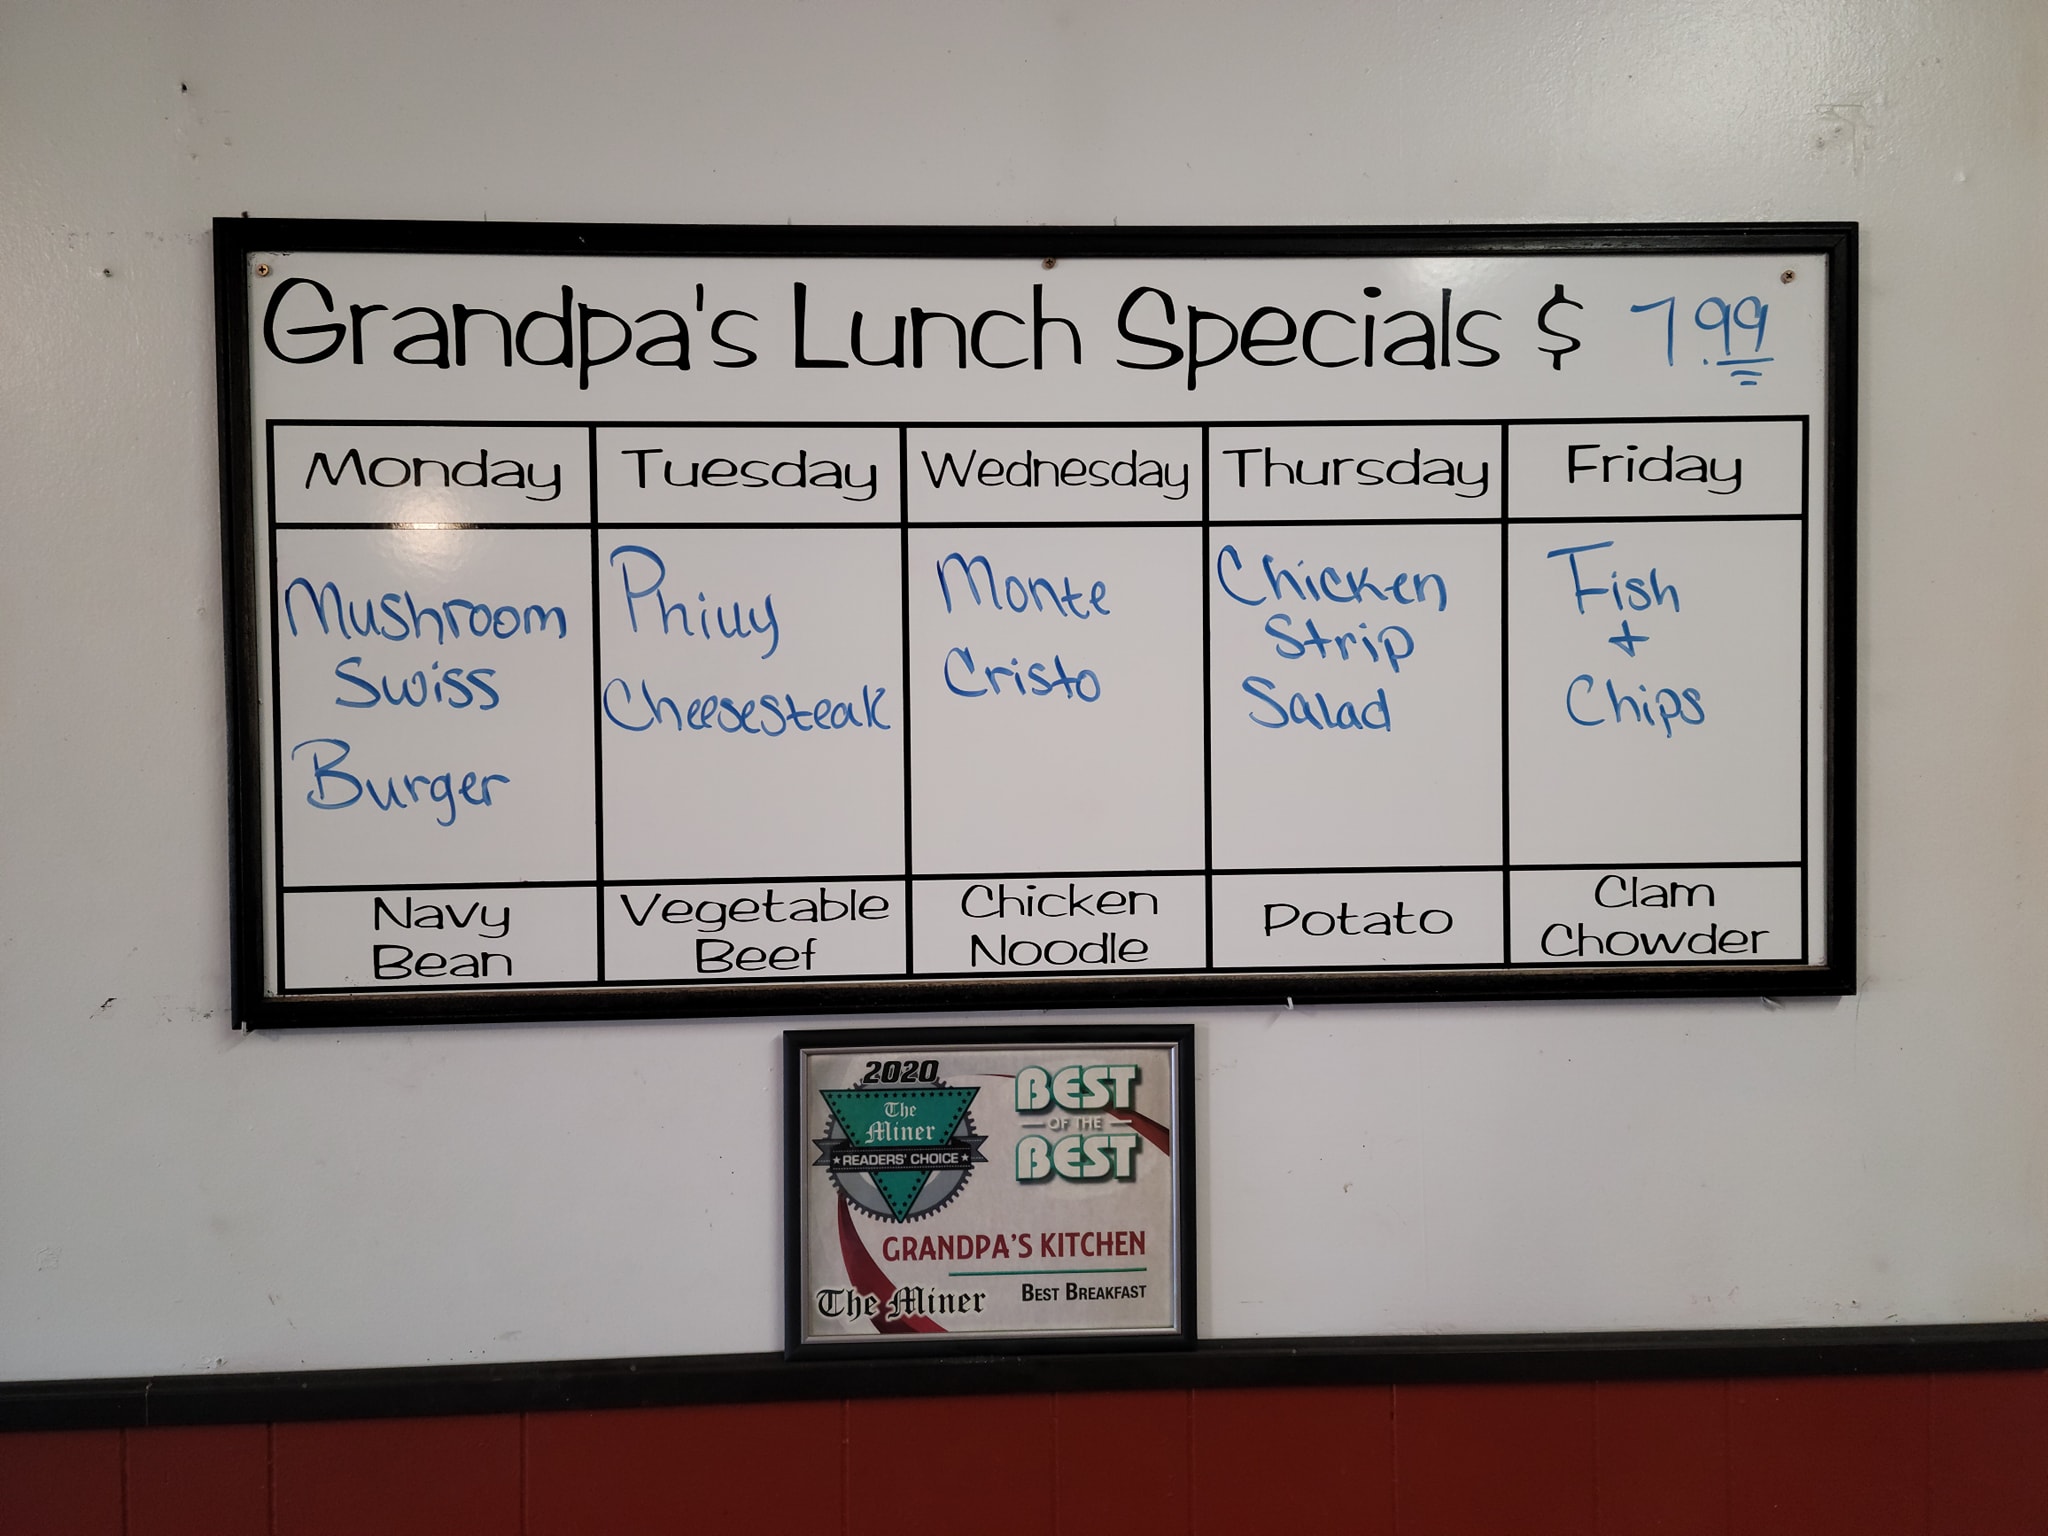 Grandpa's Lunch Specials $ 7.99
Monday
Tuesday
Wednesday
Thursday
Friday
Mushroom
Swiss
Burger
Philly
Cheesesteak
Monte
Cristo
Chicken
Strip
Salad
Fish
+
Chips
Navy
Bean
Vegetable
Beef
Chicken
Noodle
Potato
Clam
Chowder
2020
The
Miner
READERS' CHOICE
BEST
OF THE
BEST
GRANDPA'S KITCHEN
BEST BREAKFAST
The Miner